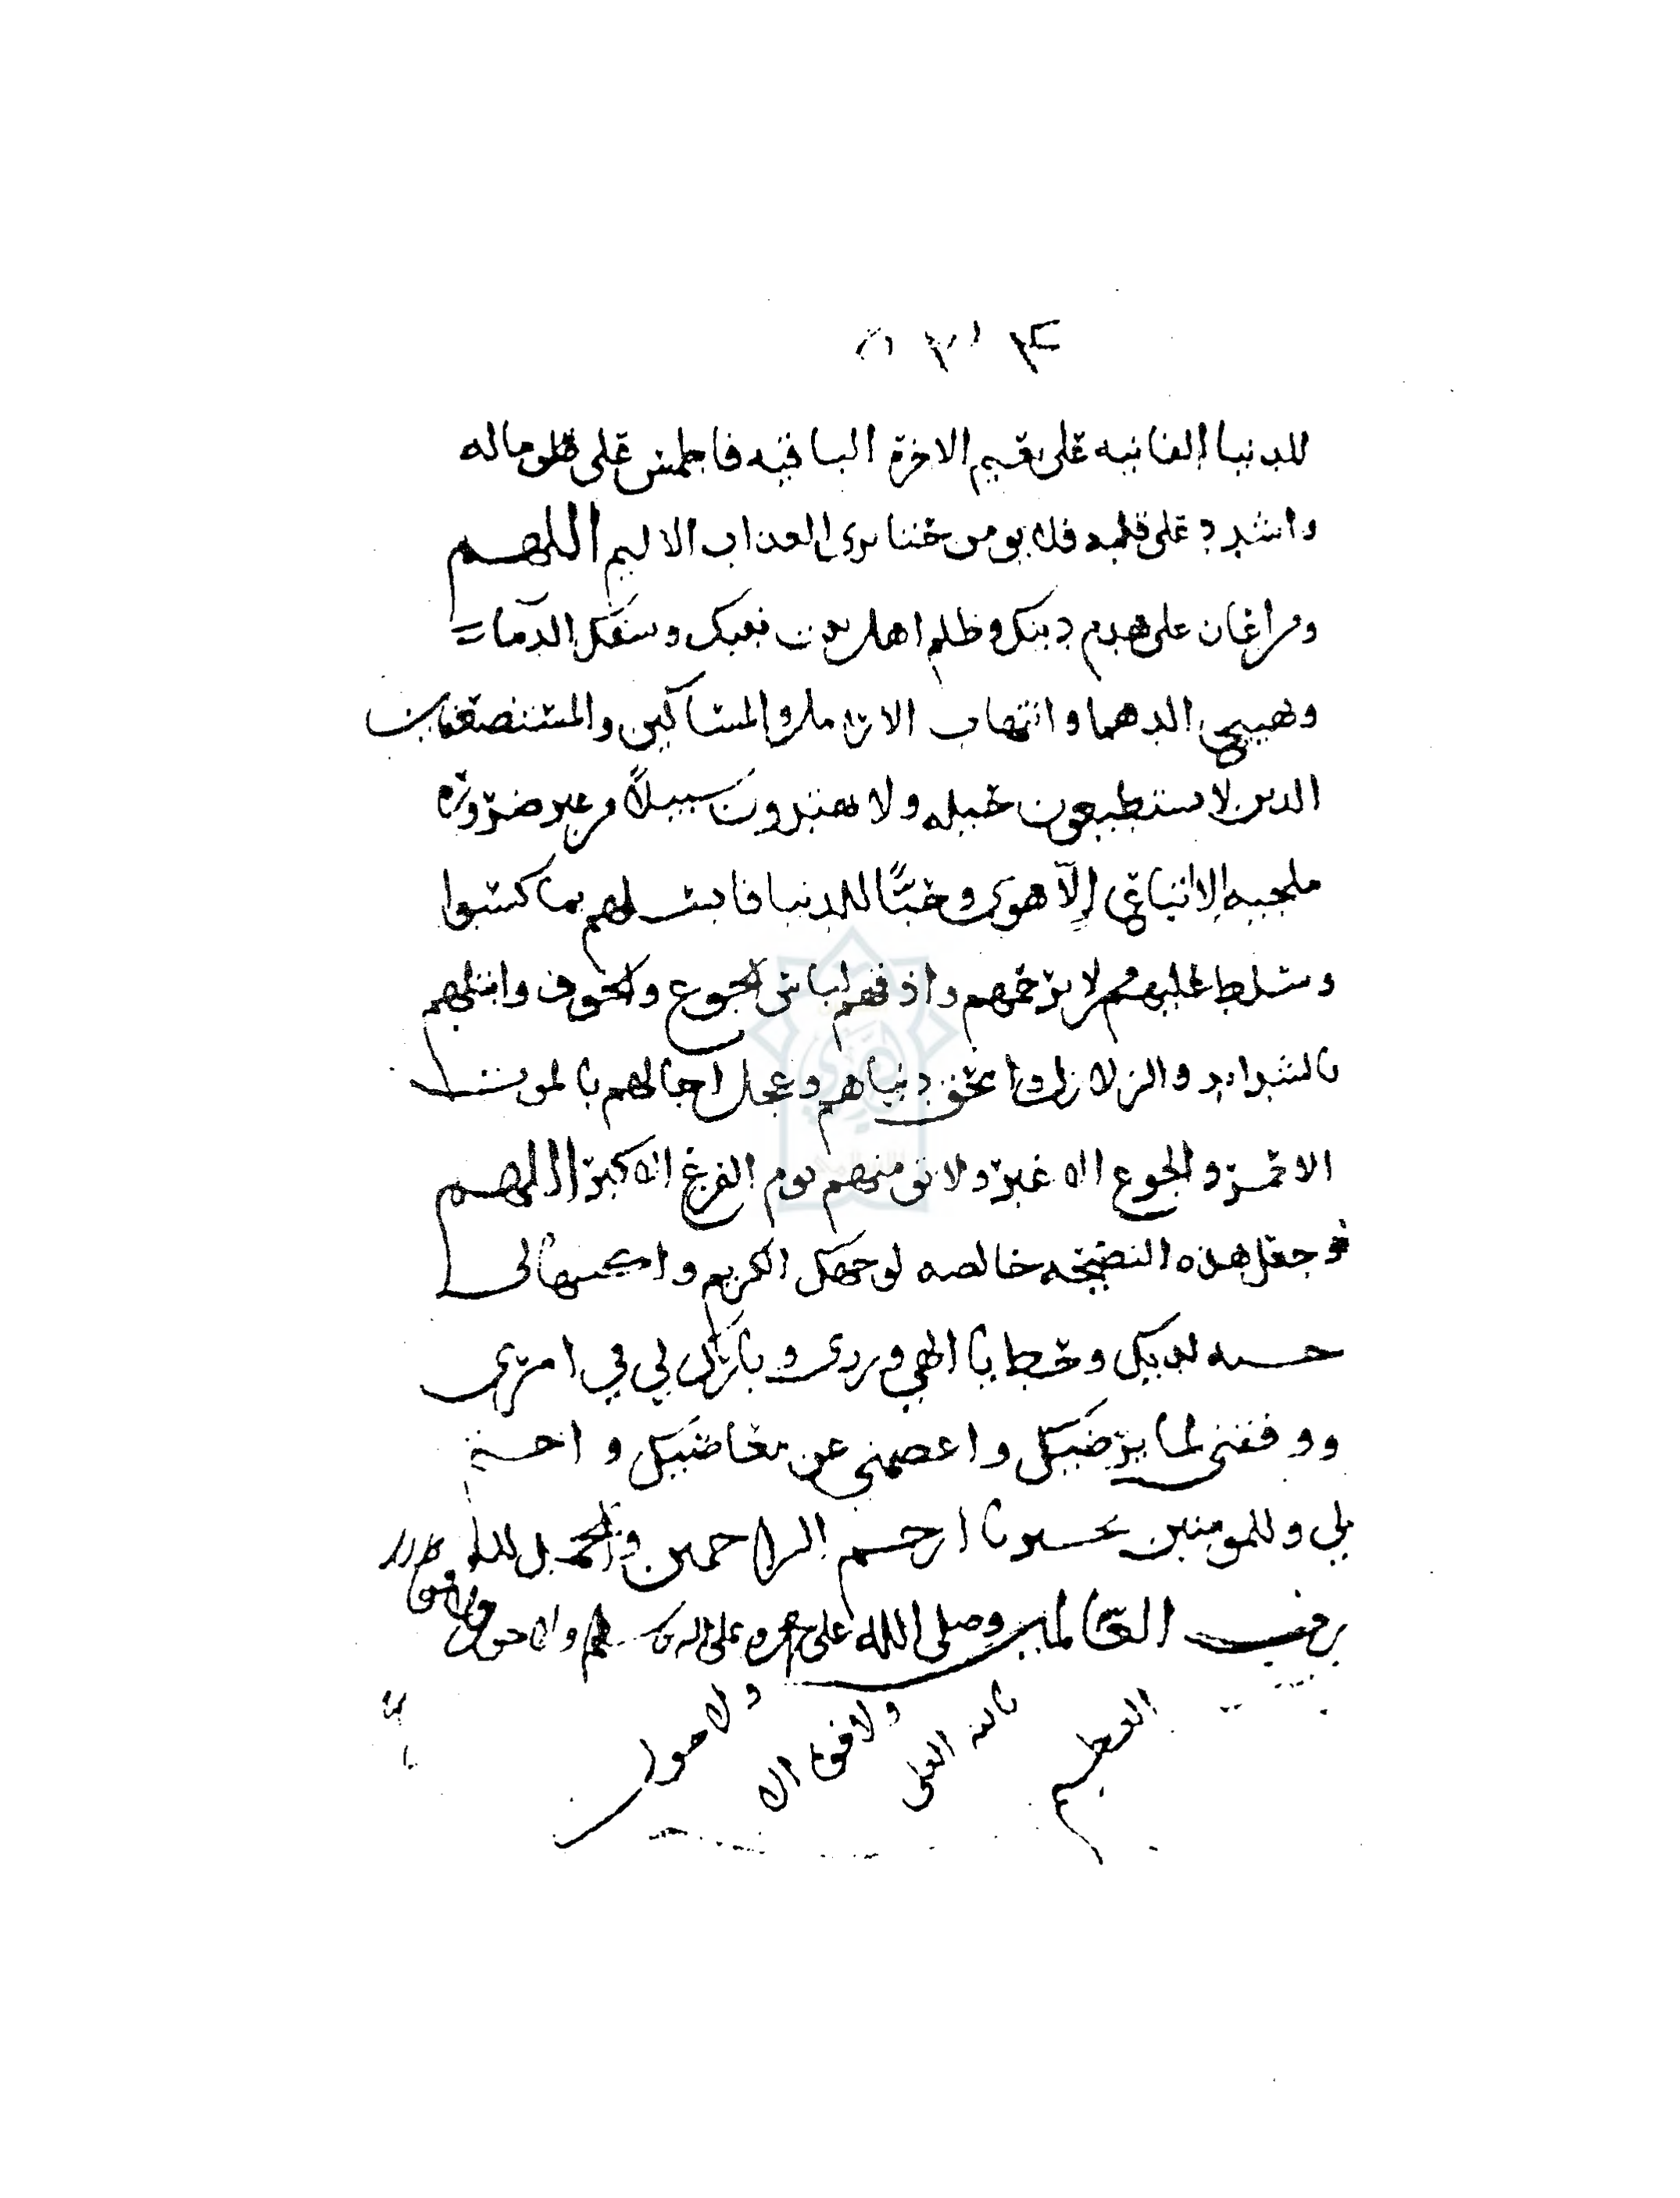 للدنيا الفانيه على نعيم الاخرة الباقيه فاطمس على ماله
واشدد على قلبه فلا يومن حتا يرى العذاب الاليم اللهم
ومن اعان على هدم دينك وظلم اهل نبيك وسفك الدما
وتهييج الدهما وانتهاب الارامل والمساكين والمستضعفين
الذين لا يستطيعون حيله ولا يهتدون سبيلاً من غير ضروره
ملجيه الا اتباعٍ إلّا هوى وحبًّا للدنيا فابسلهم بما كسبوا
وسلط عليهم من لا يرحمهم واذقهم لباس الجوع والخوف وابتليهم
بالشدايد والزلازل وامحق دنياهم وعجل اجالهم بالموت
الاحمر والجوع الاغبر ولا تومنهم يوم الفزع الاكبر اللهم
وجعل هذه النصيحه خالصه لوجهك الكريم واكتبها لي
حسنه لديك وحط يا الهي وزري وبارك لي في امري
ووفقني لما يرضيك واعصمني عن معاصيك واختم
لي وللمومنين بخير يا ارحم الراحمين والحمد لله
رب العالمين وصلى الله على محمد وعلى اله وسلم ولا حول ولا قوة
ولا حول
ولا قوة الا
بالله العلي
العظيم